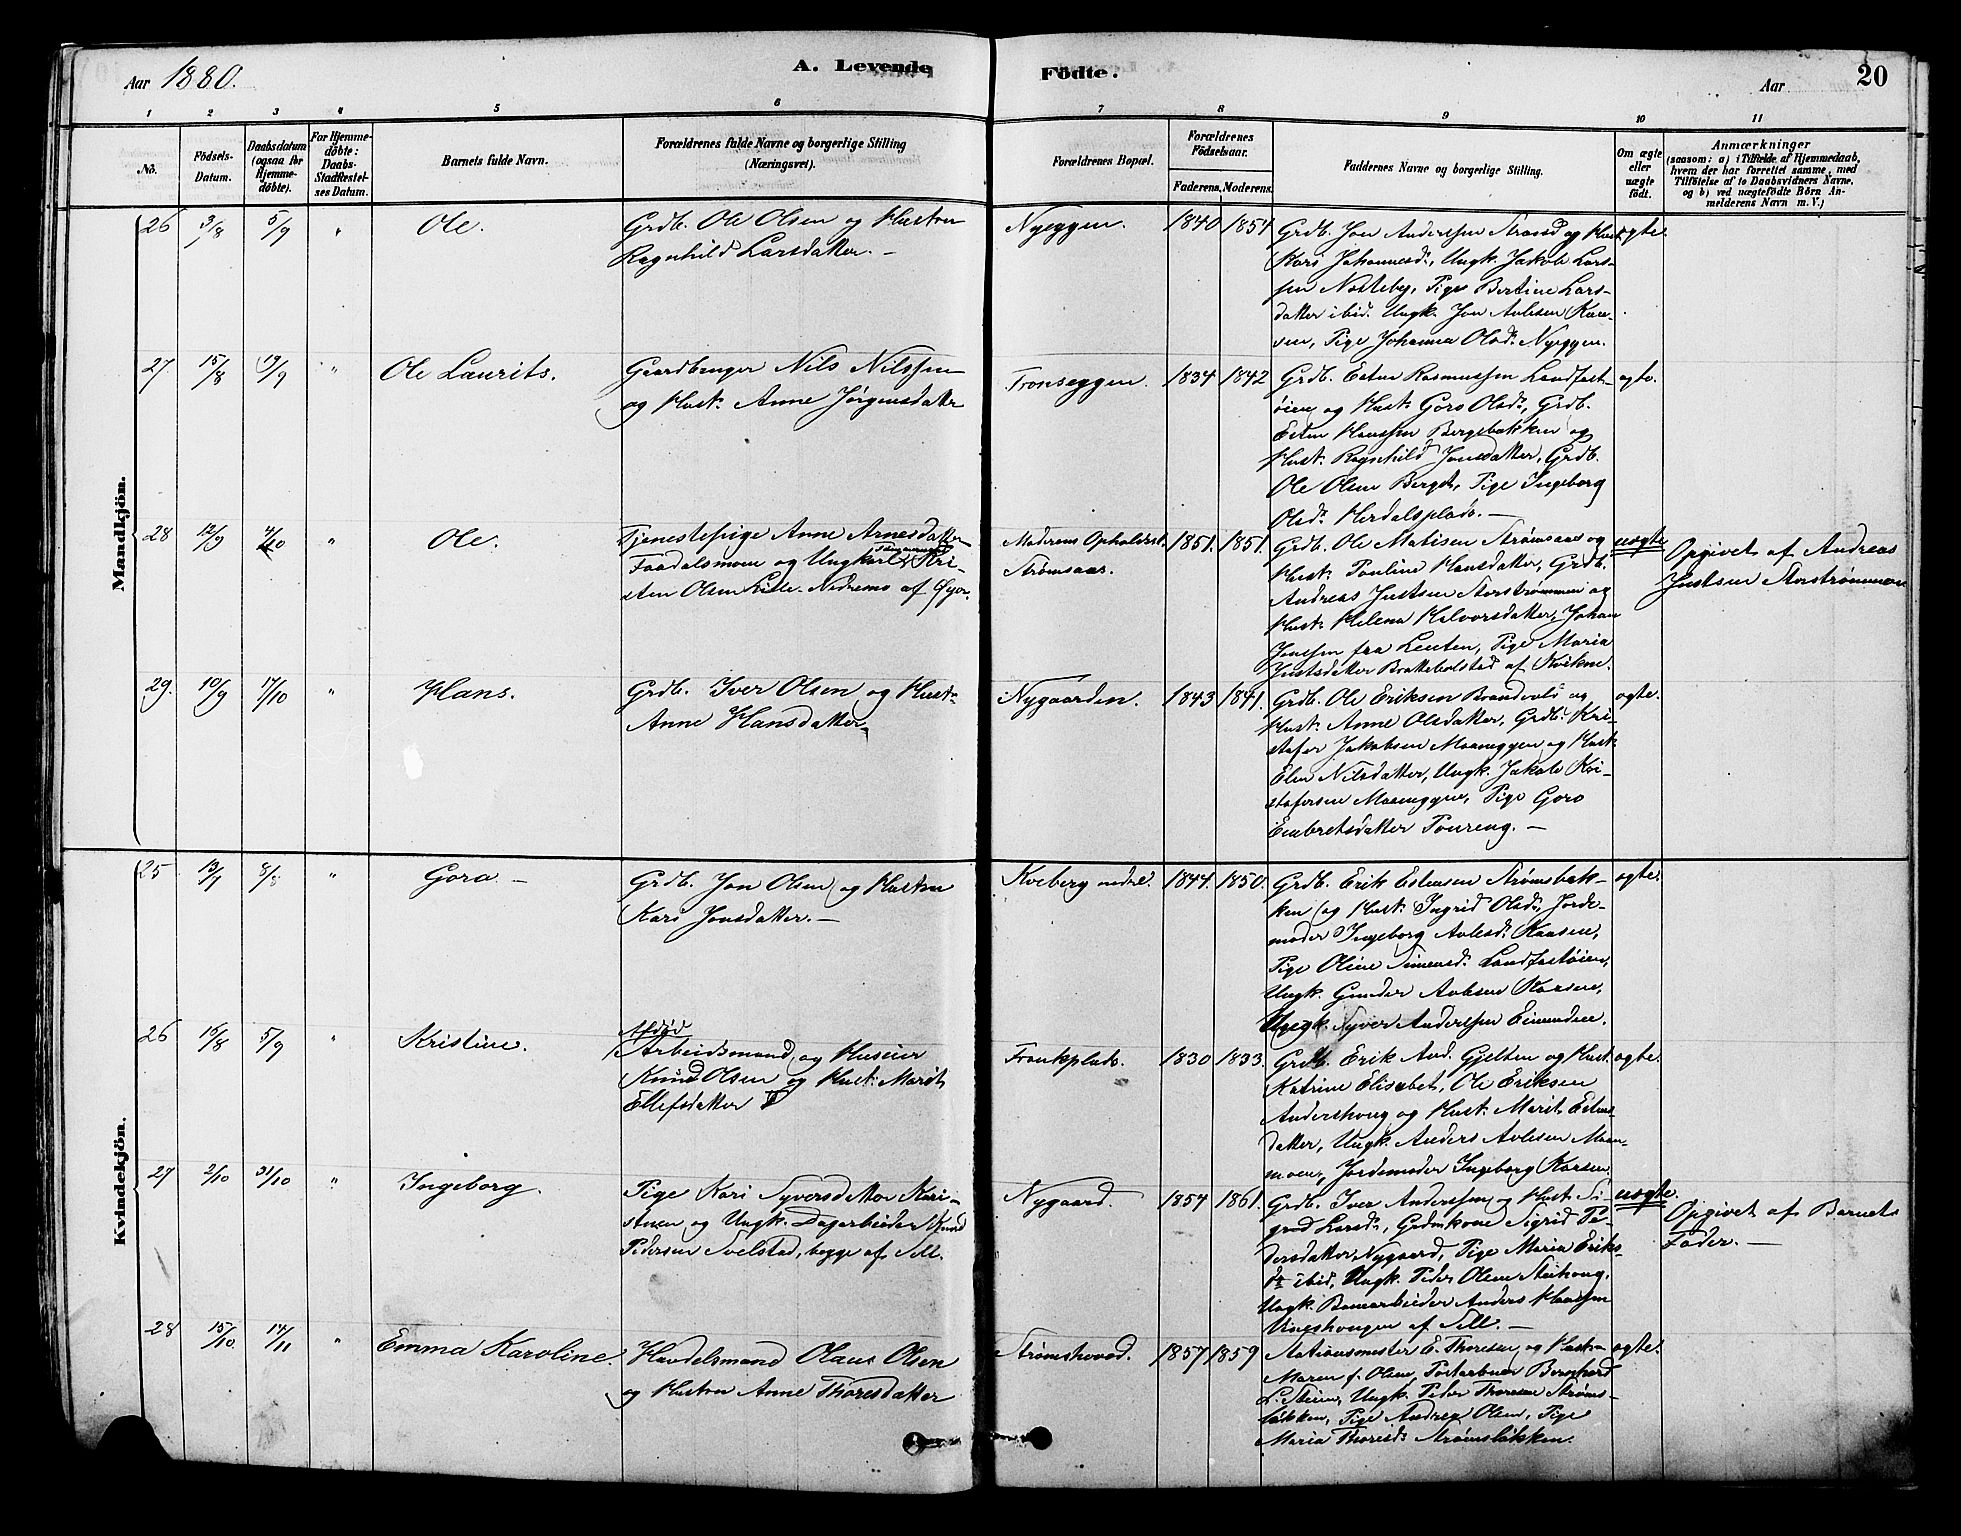 Aar 1880.
A. Levende
Födte.
Aar
20
1 2 3 4 5 6 7 8 9 10 11
No.
Födsels-
Datum.
Daabsdatum
(ogsaa for
Hjemme-
döbte).
For Hjemme-
döbte:
Daabs-
Stadfæstel-
ses Datum.
Barnets fulde Navn.
Forældrenes fulde Navne og borgerlige Stilling
(Næringsvei).
Forældrenes Bopæl.
Forældrenes
Födselsaar.
Faderens.
Moderens.
Faddernes Navne og borgerlige Stilling.
Om ægte
eller
uægte
födt.
Anmærkninger
(saasom: a) i Tilfælde af Hjemmedaab,
hvem der har forrettet samme, med
Tilföielse af to Daabsvidners Navne,
og b) ved uægtefödte Börn An-
melderens Navn m. V.)
Mandkjön.
26
3/8
5/9
"
Ole.
Grdb. Ole Olsen og Hustru
Ragnhild Larsdatter. —
Nyeggen.
1840
1854
Grdb. Jon Anderssen og Hust.
Kari Johannesd., Ungk. Jakob Lars-
sen Nosteby, Pige Bertine Lars-
datter ibid. Ungk. Jon Avlesen Kaa-
sen, Pige Johanna Olsd. Nyeggen.
ægte.
27
15/8
19/9
"
Ole Laurits.
Gaardbruger Nils Nilssen
og Hust. Anne Jørgensdatter
Tronseggen.
1834
1842
Grdb. Esten Rasmussen Landfast-
øien og Hust. Goro Olsd., Grdb.
Esten Hanssen Bergebakken og
Hust. Ragnhild Jonsdatter, Grdb.
Ole Olsen Berget, Pige Ingeborg
Olsd. Herdalsplads. —
ægte.
28
12/9
4/10
"
Ole.
Tjenestepige Anne Arnesdatter
Faadalsmoen og Ungkarl Kri-
sten Olsen Lille-Nedremo af Øyer.
Moderens Opholdsst.
Strømsaas.
1851.
1851.
Grdb. Ole Matisen Strømsaas og
Hust. Pauline Hansdatter, Grdb.
Andreas Justsen Storstrømmen og
Hust. Helena Halvorsdatter, Johan
Jonssen fra Leuten, Pige Maria
Justsdatter Brattebolstad af Kvikne.
uægte
Opgivet af Andreas
Justsen Storstrømmen
29.
10/9
17/10
"
Hans.
Grdb. Iver Olsen og Hust.
Anne Hansdatter.
Nygaarden.
1843
1841.
Grdb. Ole Eriksen Brandvold og
Hust. Anne Olsdatter, Grdb. Kri-
stofer Jakobsen Moaneggen og Hust.
Elen Nilsdatter, Ungk. Jakob Kri-
stofersen Moaneggen, Pige Goro
Embretsdatter Toureng. —
ægte.
Kvindekjön.
25
13/7
8/8
"
Gora. —
Grdb. Jon Olsen og Hustru
Kari Jonsdatter. —
Kveberg nedre.
1844.
1850.
Grdb. Erik Estensen Strømsbak-
ken og Hust. Ingrid Olsd., Jorde-
moder Ingeborg Avlesd. Kaasen,
Pige Oline Simensd. Landfastøien,
Ungk. Gunder Avlesen Kaasen,
Ungk. Syver Anderssen Eimunden.
ægte.
26
15/8
5/9
"
Kristine.
Afdød
Arbeidsmand og Huseier
Knud Olsen og Hust. Marit
Ellefsdatter
Fronkplads.
1830
1833.
Grdb. Erik And. Gjelten og Hust.
Katrine Elisabet, Ole Eriksen
Andershoug og Hust. Marit Estens-
datter, Ungk. Anders Avlesen Moan-
moen, Jordemoder Ingeborg Kaasen.
ægte.
27
2/10
31/10
"
Ingeborg.
Pige Kari Syversdatter Kari-
stuen og Ungk. Dagarbeider Knud
Pedersen Svelstad, begge af Sell.
Nygaard.
1854
1861.
Grdb. Iver Anderssen og Hust. Si-
grid Larsd., Gaardmkone Sigrid Pe-
dersdatter Nygaard, Pige Maria Eriks-
dr ibid, Ungk. Peder Olsen Steihoug.
Ungk. Banearbeider Anders Hanssen
Ulvshougen af Sell. —
uægte.
Opgivet af Barnets
Fader. —
28
15/10.
14/11
"
Emma Karoline.
Handelsmand Olaus Olsen
og Hustru Anne Thoresdatter
Strømshoved.
1857
1859
Stationsmester E. Thoresen og Hust.
Maren f. Olsen, Postaabner Bernhard
L. Steien, Ungk. Peder Thoresen Strøms-
løkken, Pige Andrea Olsen, Pige
Maria Thoresd. Strømsløkken.
ægte.